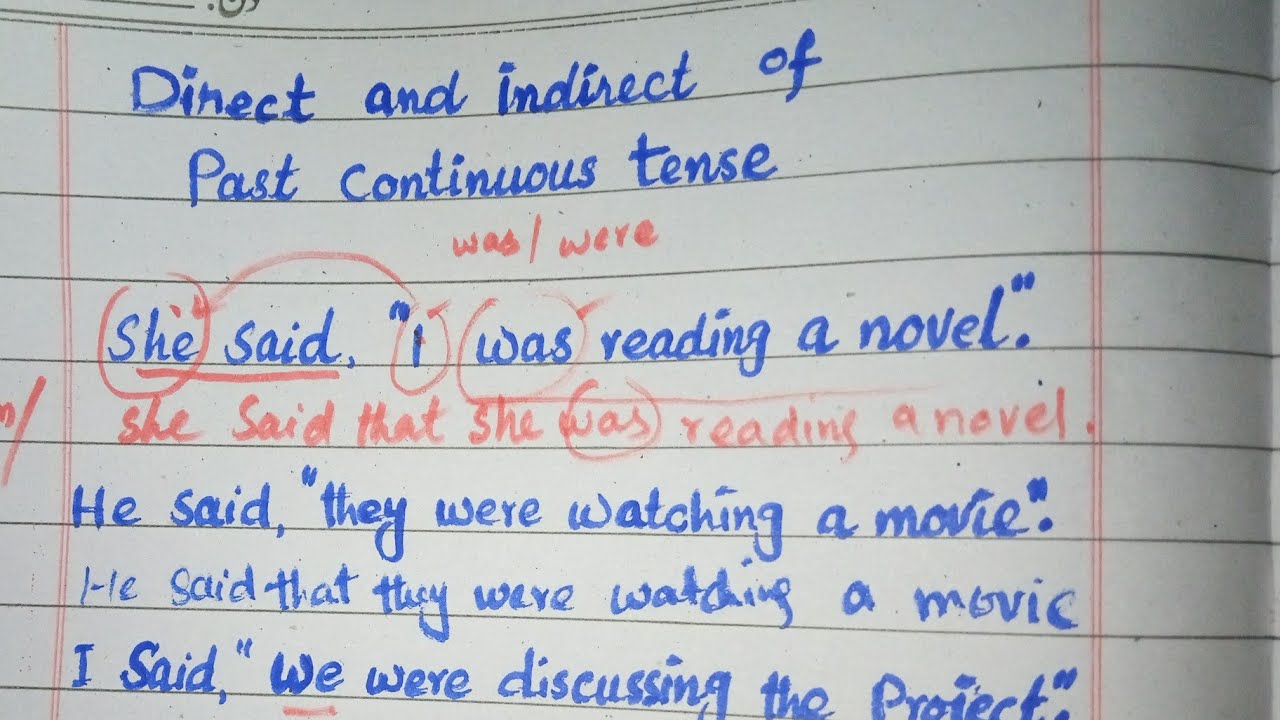 Direct and indirect of
Past continuous tense
was/ were
She said, "I was reading a novel".
she said that she was reading a novel.
He said, "they were watching a movie".
He said that they were watching a movie
I said, "we were discussing the Project".